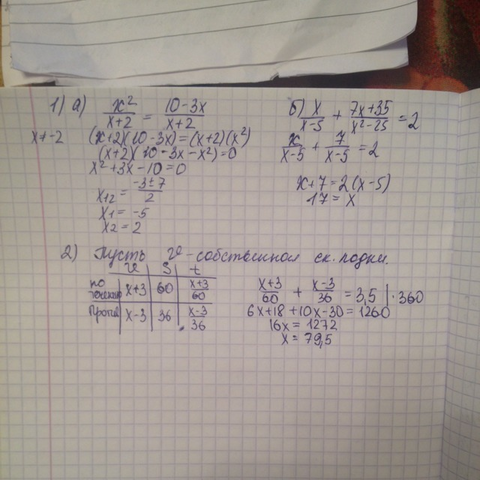 1) а) x²/(x+2) = (10-3x)/(x+2)
x≠-2
(x+2)(10-3x)=(x+2)(x²)
(x+2)(10-3x-x²)=0
x²+3x-10=0
x12 = (-3±7)/2
x1 = -5
x2 = 2
б) x/(x-5) + (7x+35)/(x²-25) = 2
x/(x-5) + 7/(x-5) = 2
x+7=2(x-5)
17=x
2) Пусть v - собственной ск. лодки.
v S t
по течению x+3 60 (x+3)/60
против x-3 36 (x-3)/36
(x+3)/60 + (x-3)/36 = 3,5 |·360
6x+18+10x-30=1260
16x=1272
x=79,5